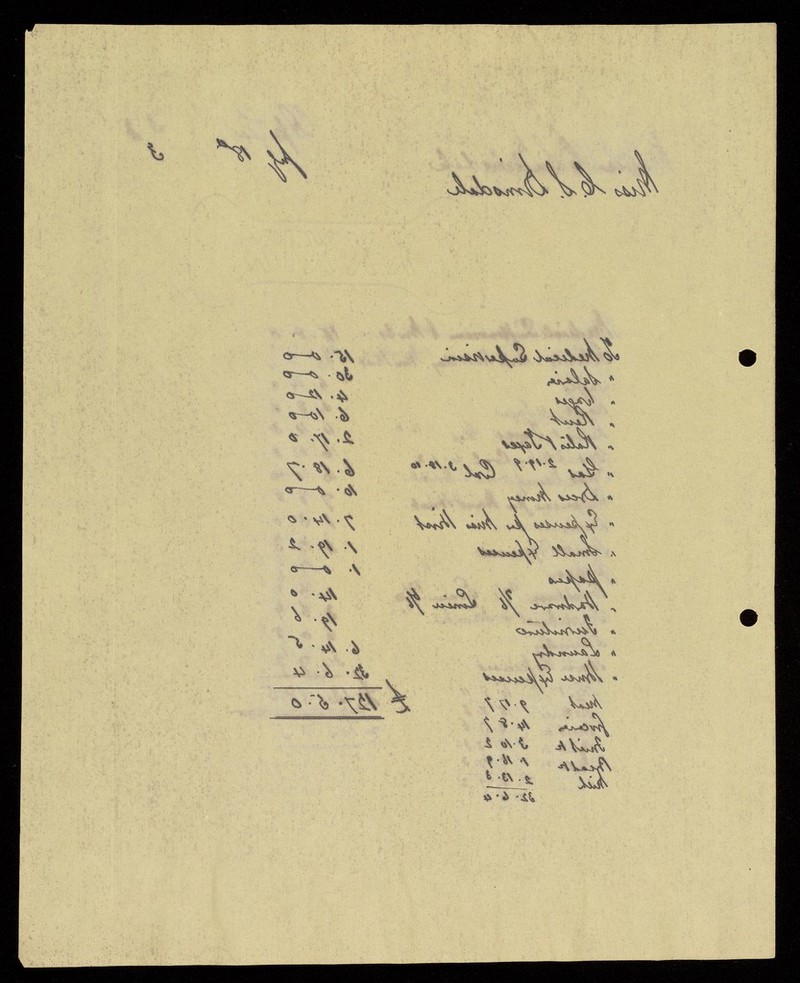 Miss
3
To Medical Supervision 15 . 0 0
" Salaries 30 . 0 0
" Wages 4 . 12 0
" Rent 6 . 10 0
" Rates & Taxes 2 . 17 . 0
" Gas 2.19.9 Coal 3.18.10 6 . 18 . 7
" Dress Money 10 . 0 0
" Expenses for Miss Hirst 7 . 14 . 0
" Small Expenses 1 . 19 . 2
" papers 1 . 0 0
" Hardware 7/6 Linen 6/6 14 . 0
" Furniture 19 . 6
" Laundry 6 . 14 . 5
" House Expenses 32 . 6 . 4
£ 127 . 5 . 0
Meat 9 . 17 . 7
Groceries 14 . 8 . 7
Fruit &c 3 . 10 . 2
Bread &c 1 . 16 . 9
Milk 2 . 13 . 3
32 . 6 . 4